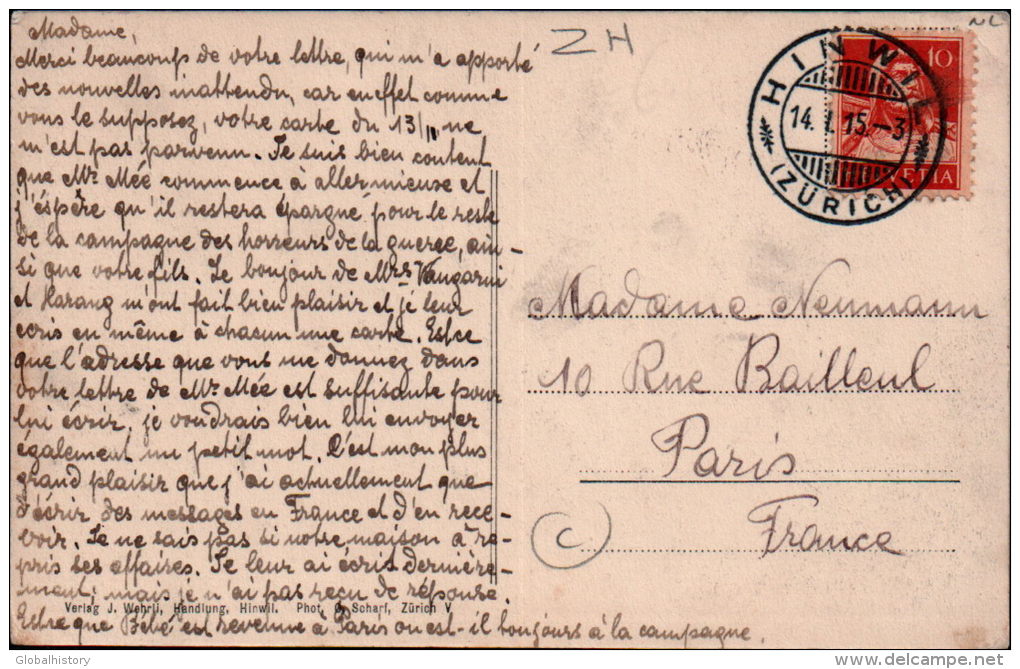 Madame,
Merci beaucoup de votre lettre, qui m'a apporté
des nouvelles inattendu, car en effet comme
vous le supposez, votre carte du 13/11 ne
m'est pas parvenu. Je suis bien content
que Mr. Mée commence à aller mieuse et
j'éspère qu'il restera épargné pour le reste
de la campagne des horreurs de la guerre, ain-
si que votre fils. Le bonjour de Mrs
et Harang m'ont fait bien plaisir et je leur
ecris en même à chacun une carte. Est ce
que l'adresse que vous me donnez dans
votre lettre de Mr. Mée est suffisante pour
lui écrir, je voudrais bien lui envoyer
également un petit mot. C'est mon plus
grand plaisir que j'ai actuellement que
d'écrir des messages en France et d'en rece-
voir. Je ne sais pas si notre maison à re-
pris ses affaires. Je leur ai écrit dernière-
ment, mais je n'ai pas reçu de réponse.
Verlag J. Wehrli, Handlung, Hinwil. Phot. O. Scharf, Zürich V
Estce que Bébé est revenue à Paris ou est-il toujours à la campagne.
ZH
NL
HINWIL
14. I. 15.-3
(ZÜRICH)
10
HELVETIA
Madame Neumann
10 Rue Bailleul
Paris
France
C
Globalhistory
http://www.delcampe.net